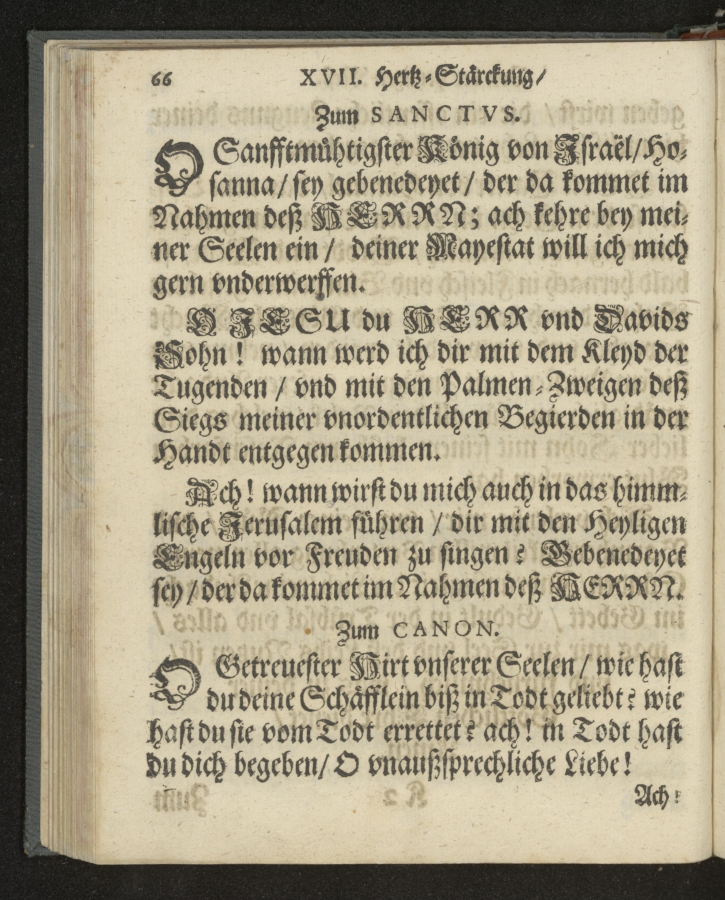 66 XVII. Hertz-Stärckung/
Zum SANCTVS.
O Sanfftmühtigster König von Jsraël/Ho-
sanna/sey gebenedeyet/ der da kommet im
Nahmen deß HERRN; ach kehre bey mei-
ner Seelen ein/ deiner Mayestat will ich mich
gern vnderwerffen.
O JESU du HERR vnd Davids
Sohn! wann werd ich dir mit dem Kleyd der
Tugenden/ vnd mit den Palmen-Zweigen deß
Siegs meiner vnordentlichen Begierden in der
Handt entgegen kommen.
Ach! wann wirst du mich auch in das himm-
lische Jerusalem führen/ dir mit den Heyligen
Engeln vor Freuden zu singen? Gebenedeyet
sey/der da kommet im Nahmen deß HERRN.
Zum CANON.
O Getreuester Hirt vnserer Seelen/ wie hast
du deine Schäfflein biß in Todt geliebt? wie
hast du sie vom Todt errettet? ach! in Todt hast
du dich begeben/ O vnaußsprechliche Liebe!
Ach!